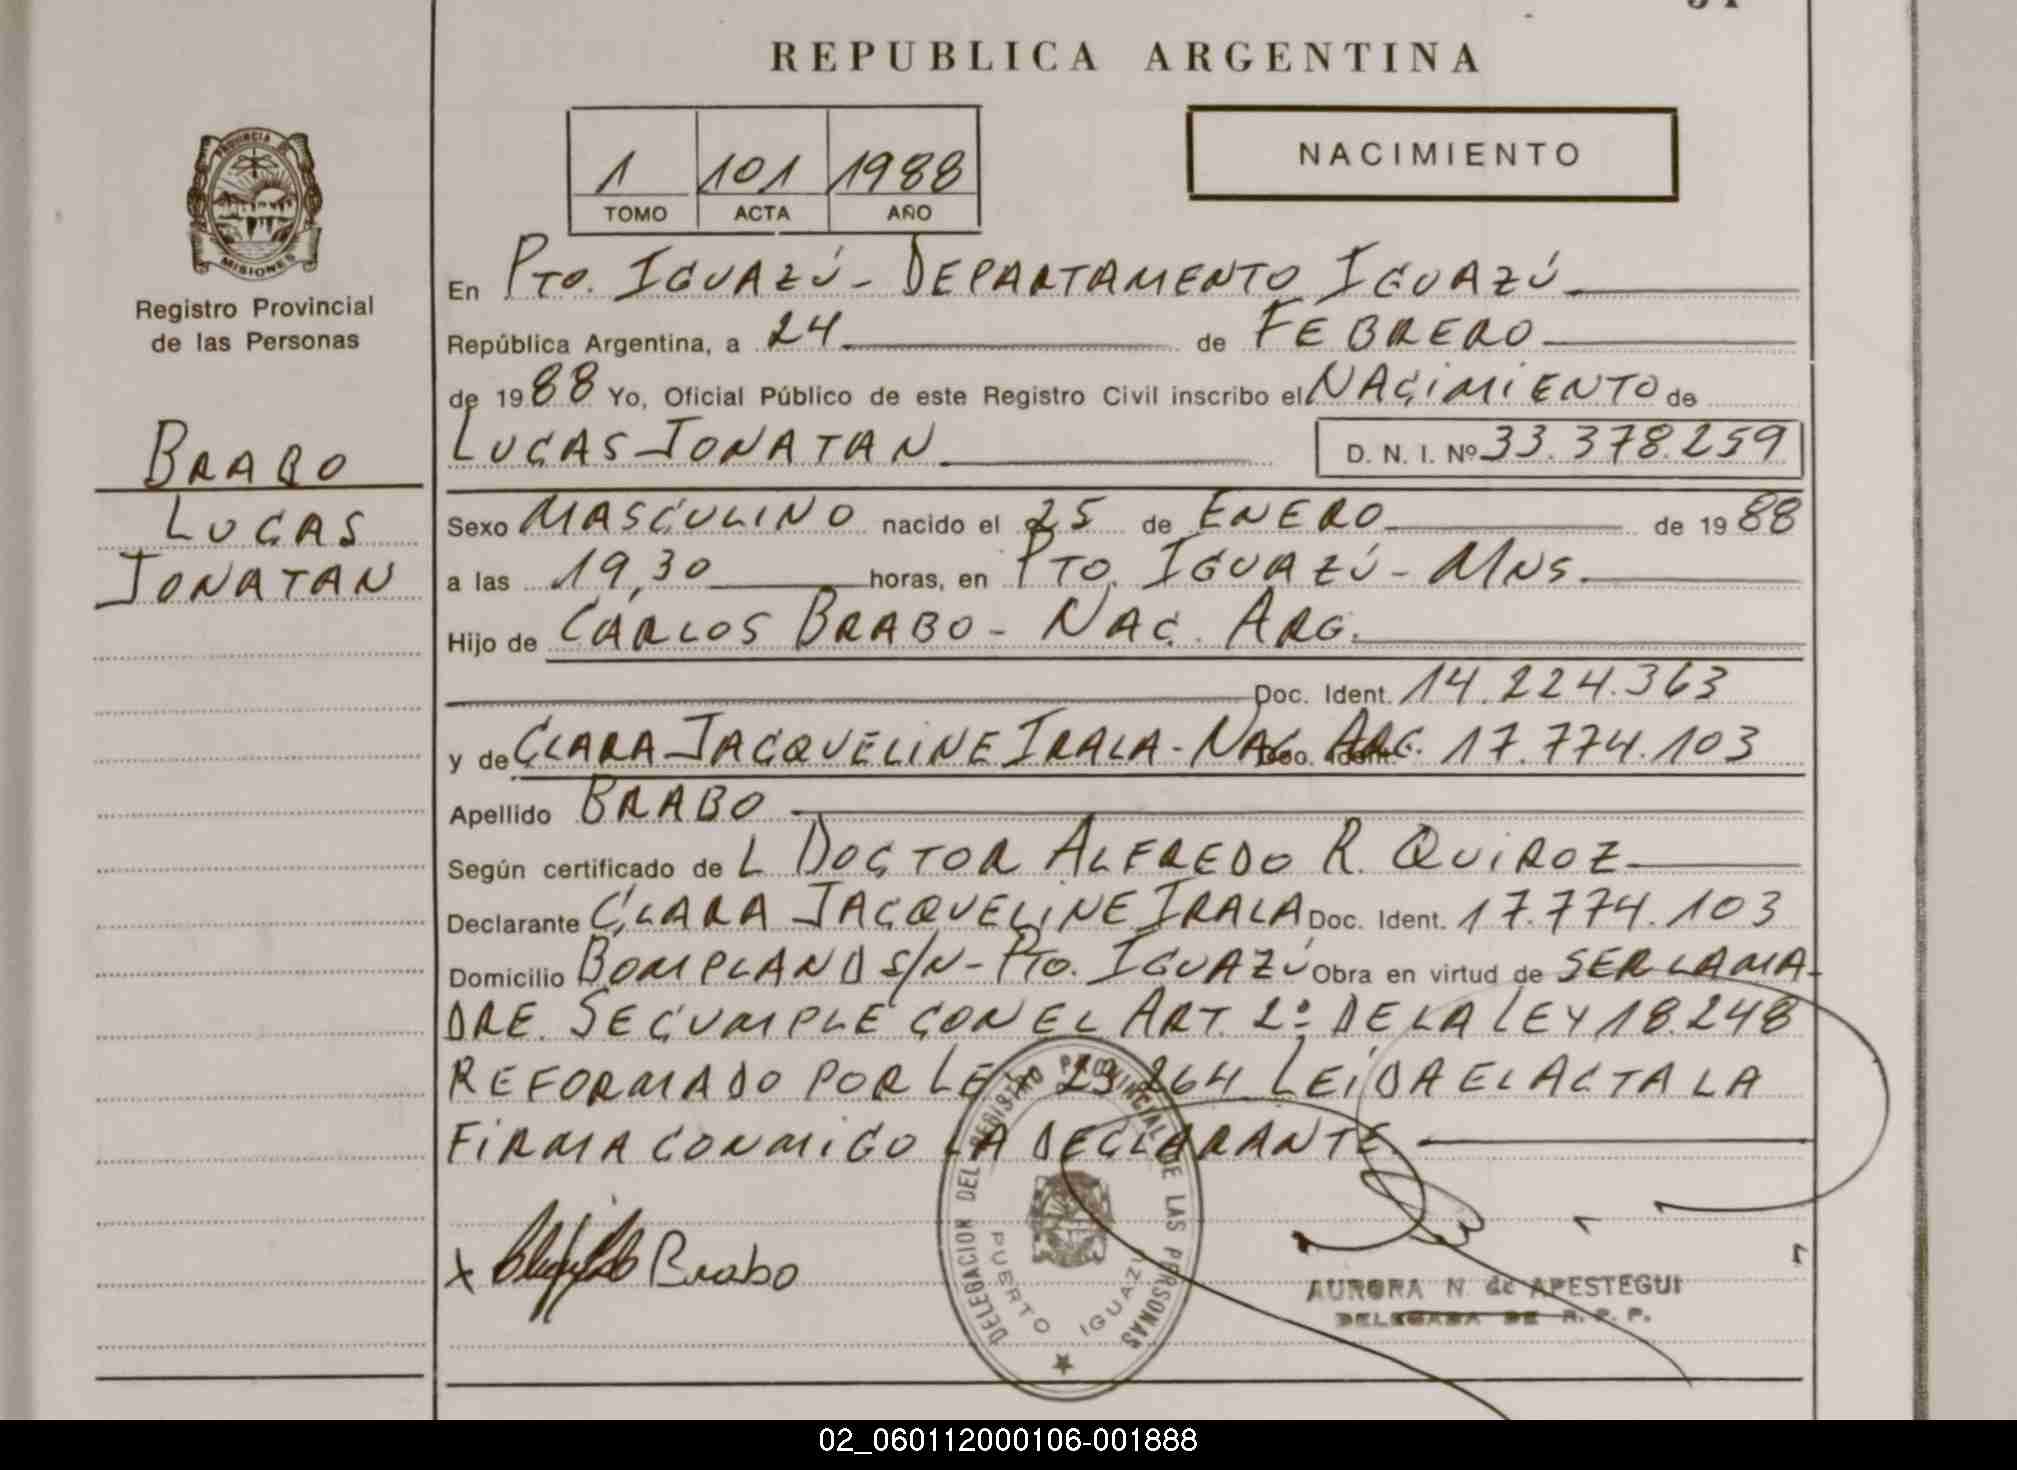 REPUBLICA ARGENTINA
1 101 1988
TOMO ACTA AÑO
NACIMIENTO
PROVINCIA DE
MISIONES
Registro Provincial
de las Personas
BRABO
LUCAS
JONATAN
En PTO. IGUAZÚ - DEPARTAMENTO IGUAZÚ
República Argentina, a 24 de FEBRERO
de 1988 Yo, Oficial Público de este Registro Civil inscribo el NACIMIENTO de
LUCAS JONATAN D. N. I. Nº 33.378.259
Sexo MASCULINO nacido el 25 de ENERO de 1988
a las 19,30 horas, en PTO. IGUAZÚ - MNS.
Hijo de CARLOS BRABO - NAC. ARG.
Doc. Ident. 14.224.363
y de CLARA JACQUELINE IRALA - NAC. ARG. Doc. Ident. 17.774.103
Apellido BRABO
Según certificado de L DOCTOR ALFREDO R. QUIROZ
Declarante CLARA JACQUELINE IRALA Doc. Ident. 17.774.103
Domicilio BOMPLAND S/N - PTO. IGUAZÚ Obra en virtud de SER LA MA-
DRE. SE CUMPLE CON EL ART. 2º DE LA LEY 18.248
REFORMADO POR LEY 23.264 LEÍDA EL ACTA LA
FIRMA CONMIGO LA DECLARANTE.
DELEGACION DEL REGISTRO PROVINCIAL DE LAS PERSONAS
PUERTO IGUAZU
x Brabo
AURORA N. de APESTEGUI
DELEGADA DE R. P. P.
02_060112000106-001888